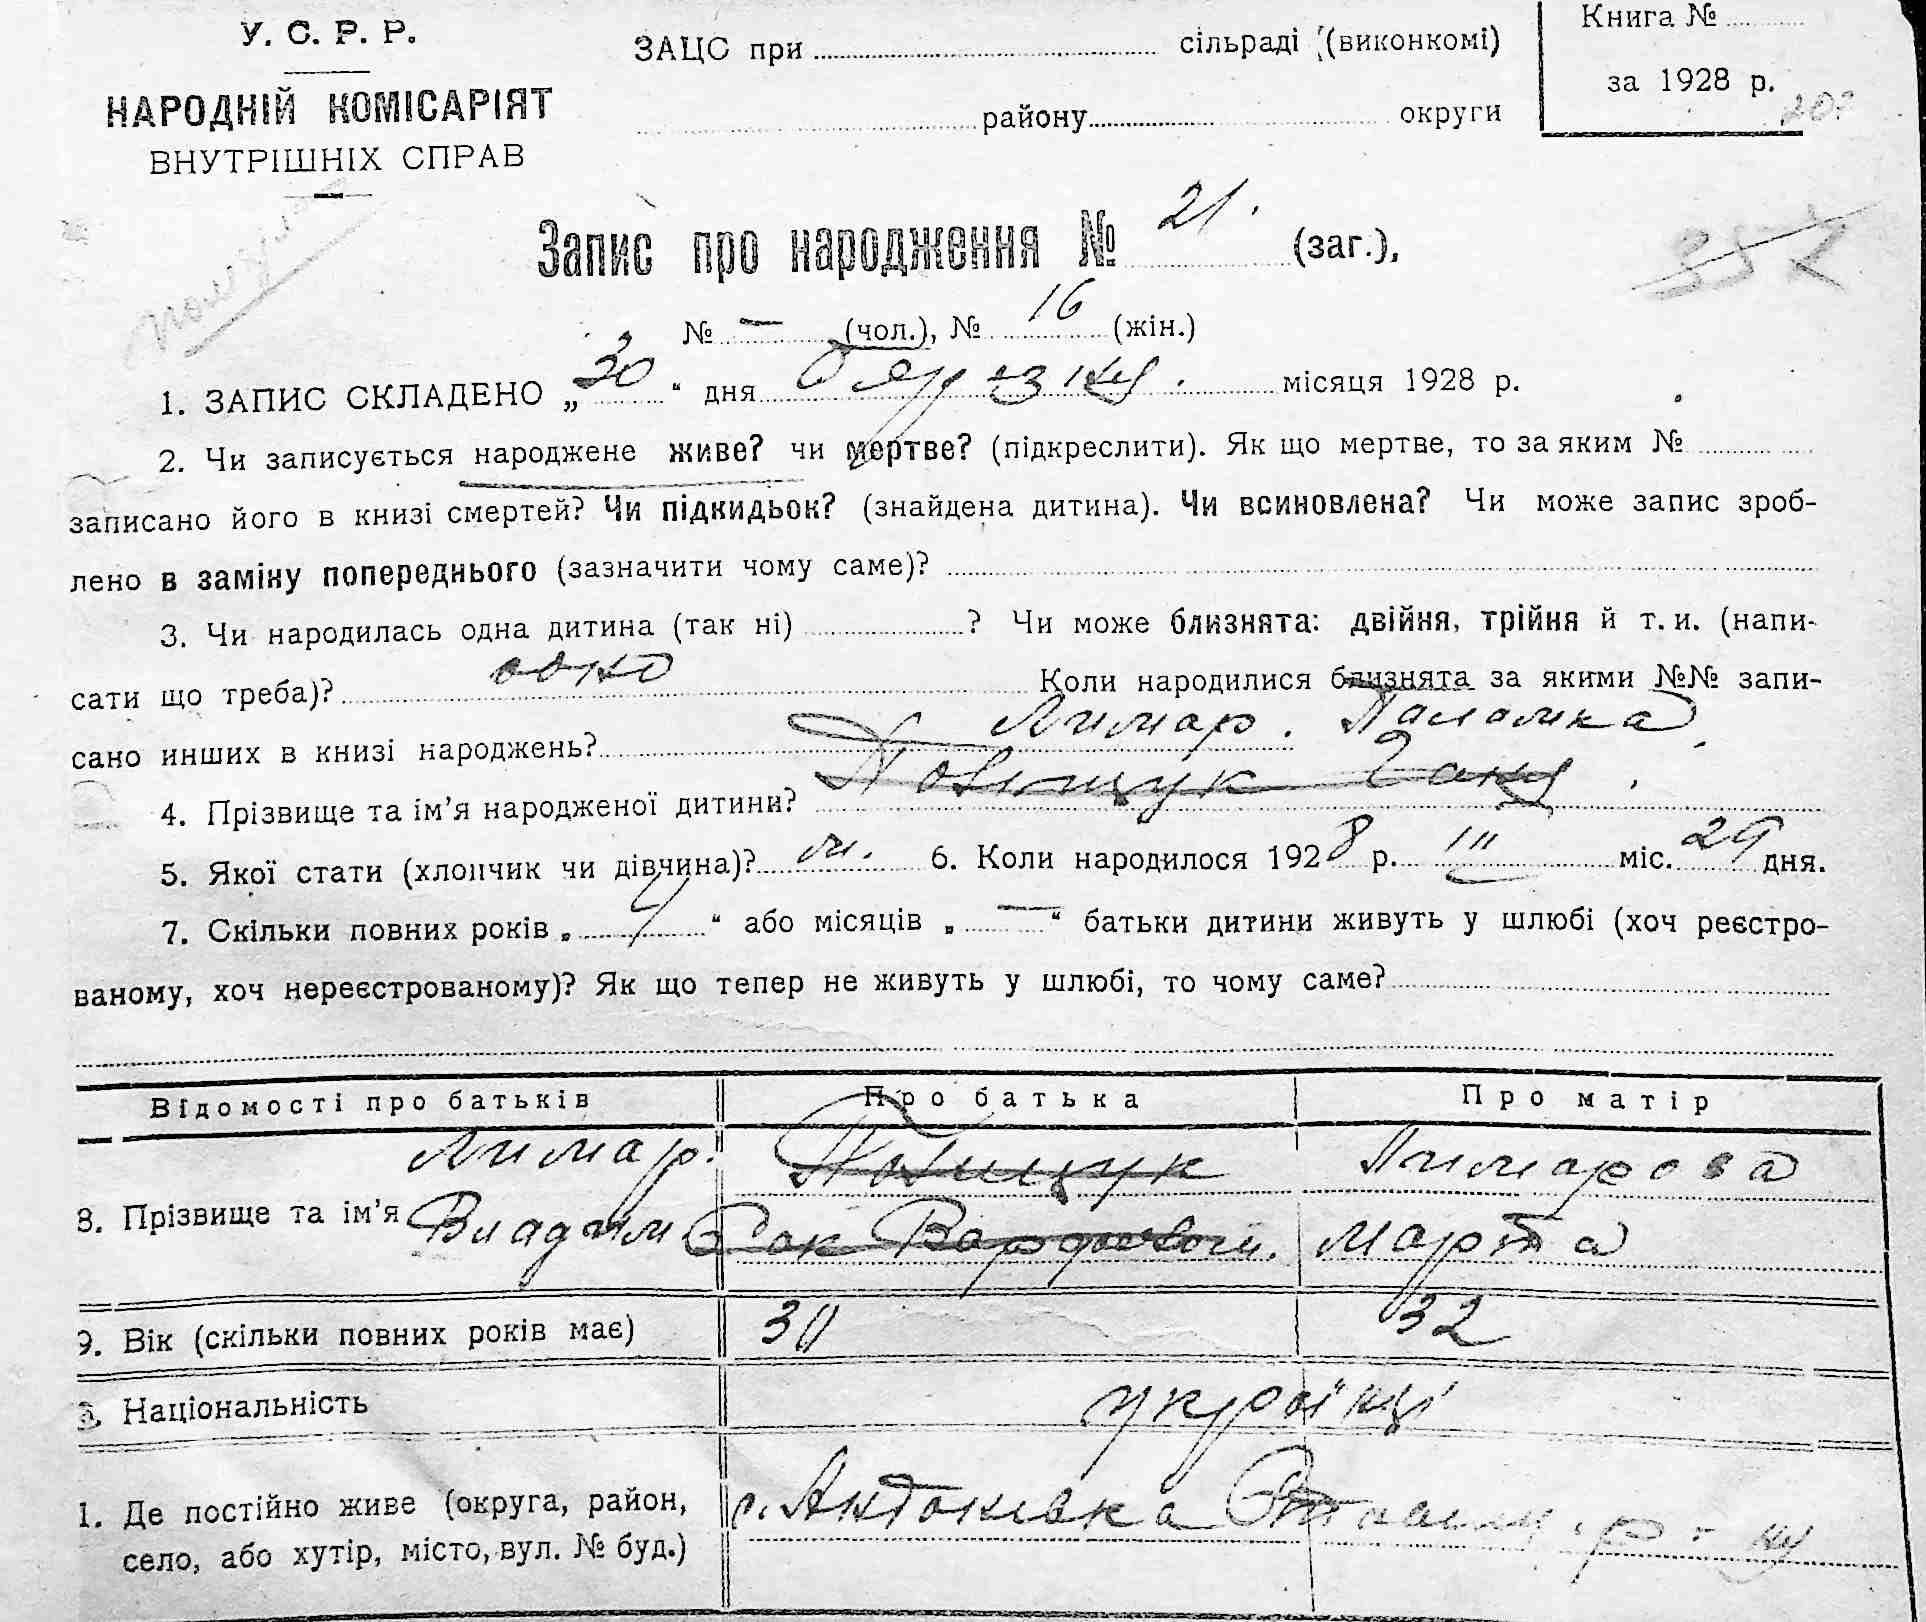 У. С. Р. Р.
НАРОДНІЙ КОМІСАРІЯТ
ВНУТРІШНІХ СПРАВ
ЗАЦС при сільраді (виконкомі)
району округи
Книга №
за 1928 р.
Запис про народження № 21. (заг.),
352
№ — (чол.), № 16 (жін.)
1. ЗАПИС СКЛАДЕНО „30“ дня березня місяця 1928 р.
2. Чи записується народжене живе? чи мертве? (підкреслити). Як що мертве, то за яким №
записано його в книзі смертей? Чи підкидьок? (знайдена дитина). Чи всиновлена? Чи може запис зроб-
лено в заміну попереднього (зазначити чому саме)?
3. Чи народилась одна дитина (так ні) ? Чи може близнята: двійня, трійня й т. и. (напи-
сати що треба)? одно Коли народилися близнята за якими №№ запи-
сано инших в книзі народжень? Лимар. Палажка
4. Прізвище та ім'я народженої дитини? Повищук Ганя.
5. Якої стати (хлопчик чи дівчина)? 6. Коли народилося 1928 р. III міс. 29 дня.
7. Скільки повних років „ “ або місяців „—“ батьки дитини живуть у шлюбі (хоч реєстро-
ваному, хоч нереєстрованому)? Як що тепер не живуть у шлюбі, то чому саме?
Відомості про батьків Про батька Про матір
Лимар. Повищук Лимарова
8. Прізвище та ім'я Владим Сак Марта
9. Вік (скільки повних років має) 30 32
Національність українці
1. Де постійно живе (округа, район, с. Антонівка р-ну
село, або хутір, місто, вул. № буд.)